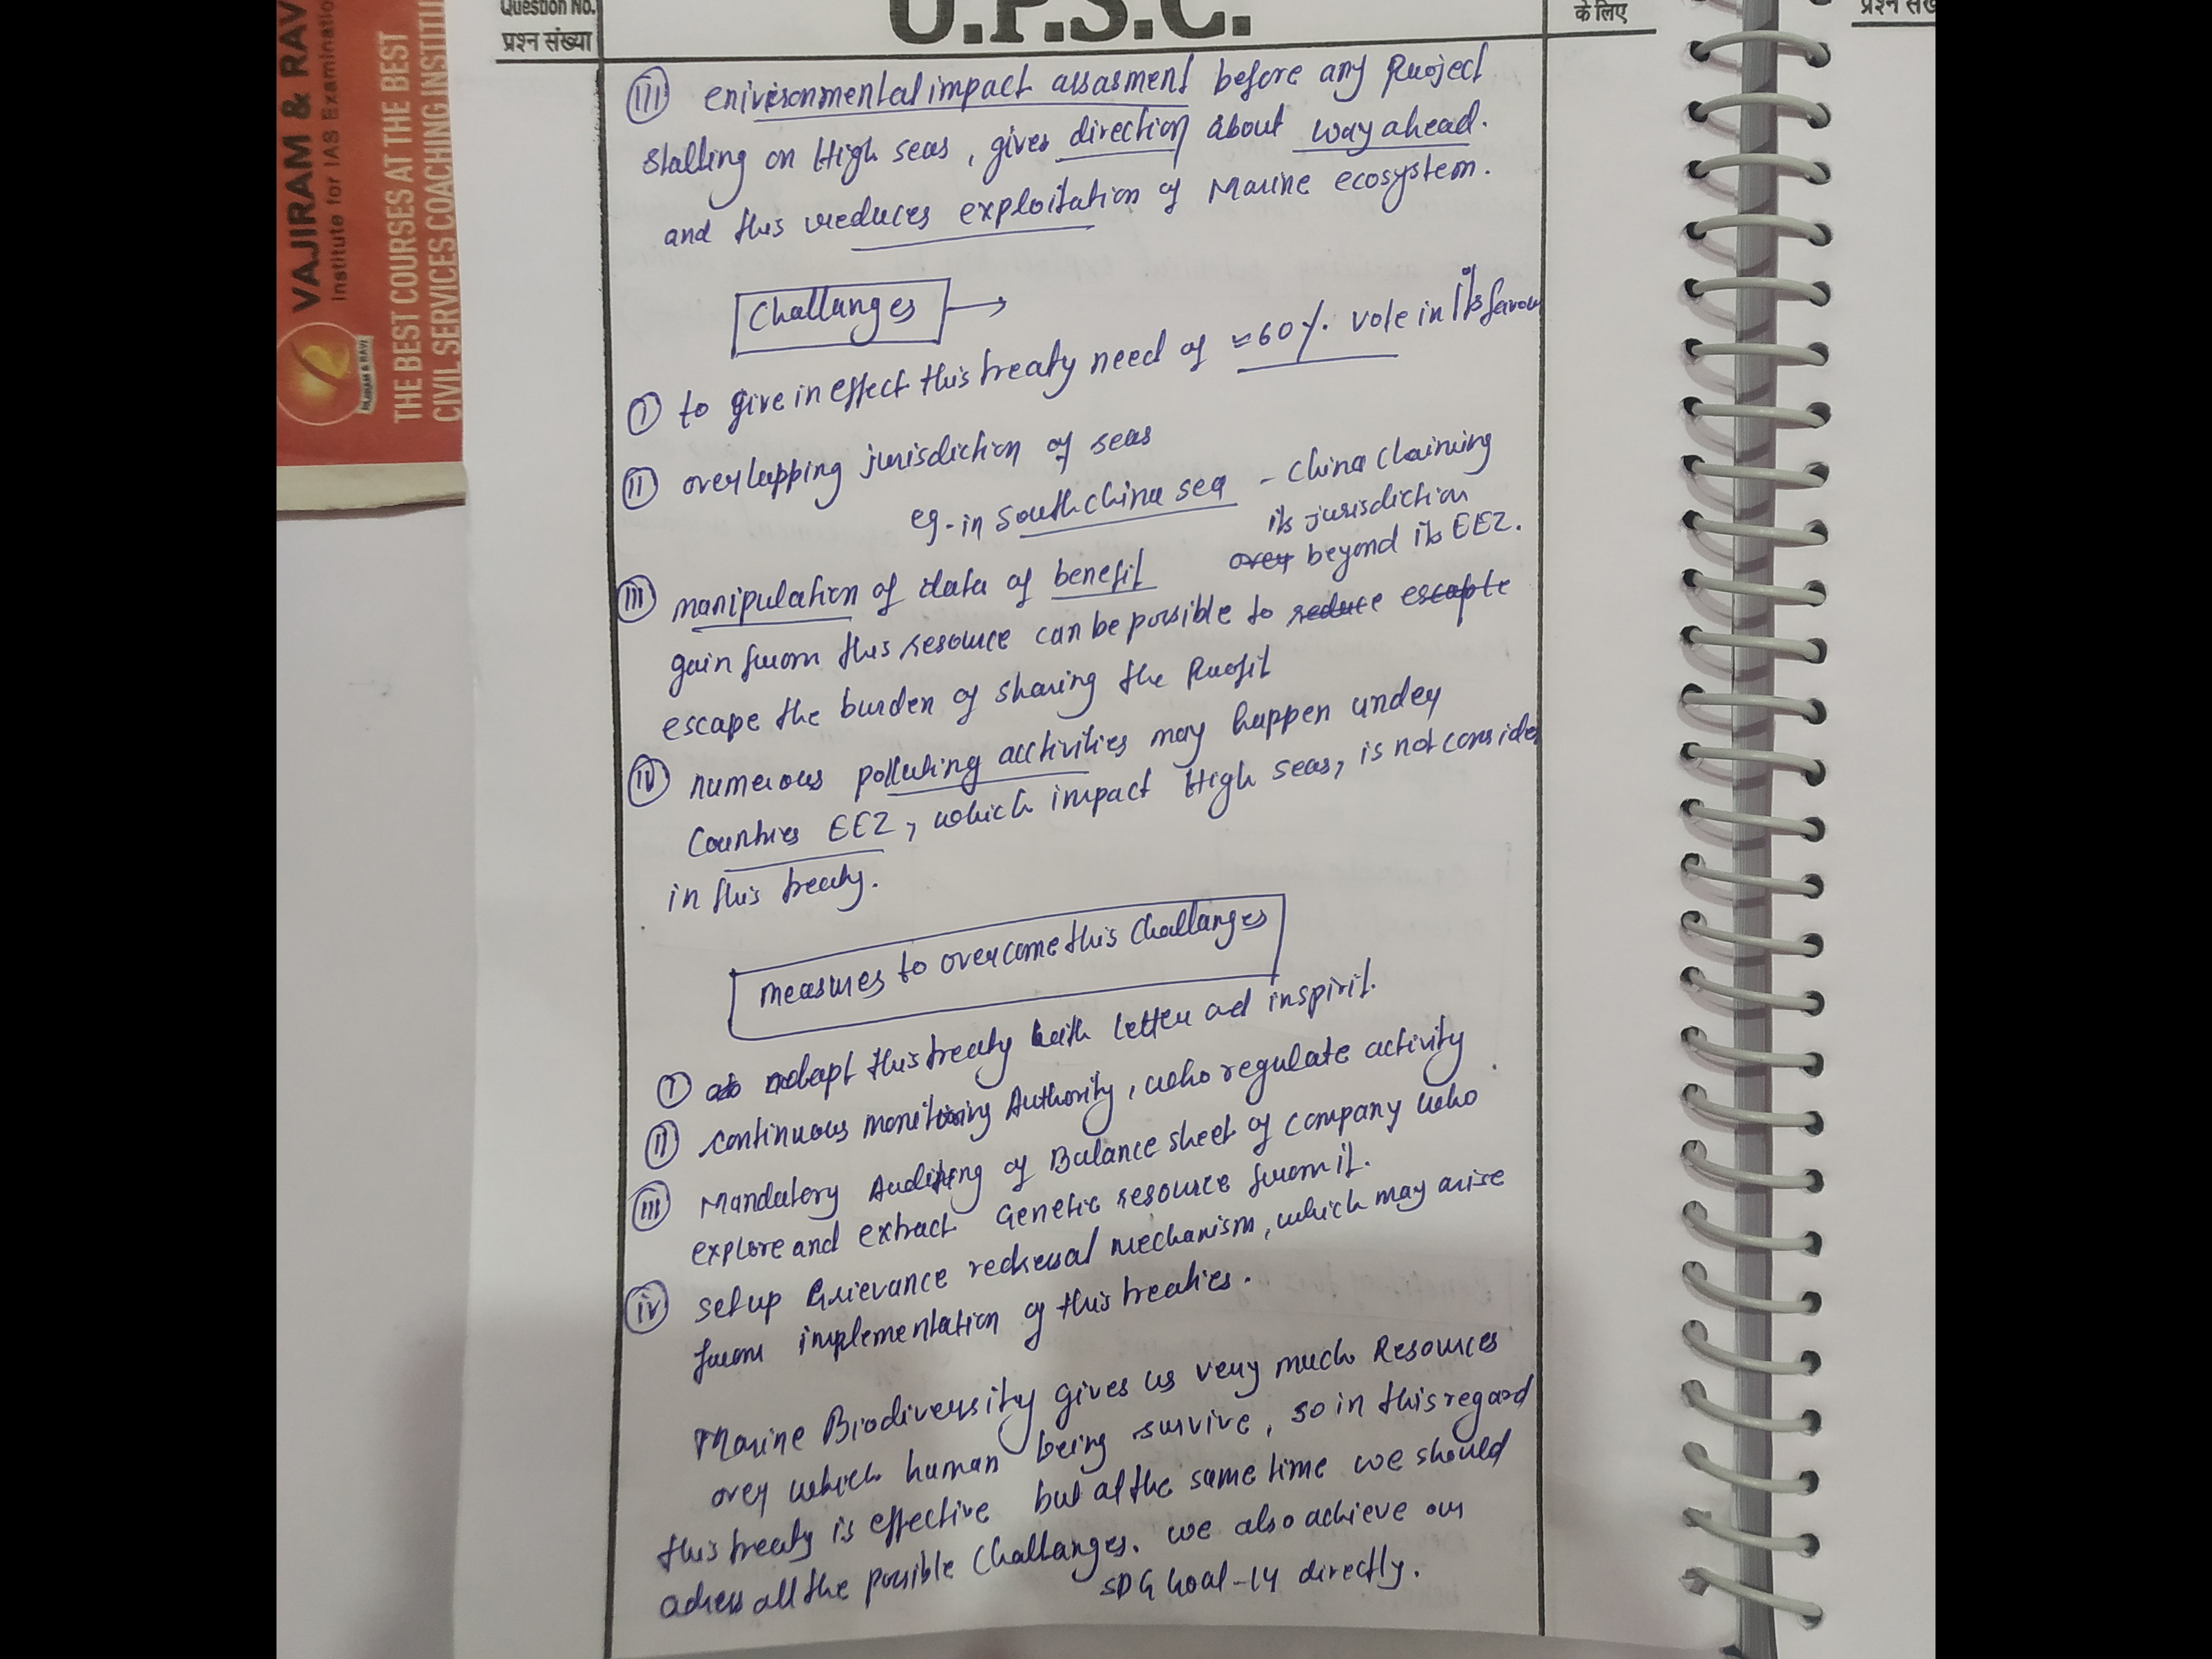 VAJIRAM & RAV
Institute for IAS Examinatio
THE BEST COURSES AT THE BEST
CIVIL SERVICES COACHING INSTITU
Question No.
प्रश्न संख्या
U.P.S.C.
के लिए
(III) enivironmental impact assasment before any Project
stalling on High seas, gives direction about way ahead.
and this reduces exploitation of Marine ecosystem.
Challanges →
(I) to give in effect this treaty need of ≈60% vote in its favour
(II) overlapping jurisdiction of seas
eg- in South china sea - China claiming
its jurisdiction
over beyond its EEZ.
(III) manipulation of data of benefit
gain from this resource can be possible to reduce escapte
escape the burden of sharing the Profit
(IV) numerous polluting acctivities may happen under
Countries EEZ, which impact High seas, is not conside
in this treaty.
measures to overcome this Challanges
(I) adapt this treaty with letter ad inspirit.
(II) continuous monitoring Authority, who regulate activity
(III) Mandatory Auditing of Balance sheet of company who
explore and extract Genetic resource from it.
(iv) setup Grievance redressal mechanism, which may arise
from implementation of this treaties.
Marine Biodiversity gives us very much Resources
over which human being survive, so in this regard
this treaty is effective but at the same time we should
adress all the possible Challanges. we also achieve our
SDG Goal-14 directly.